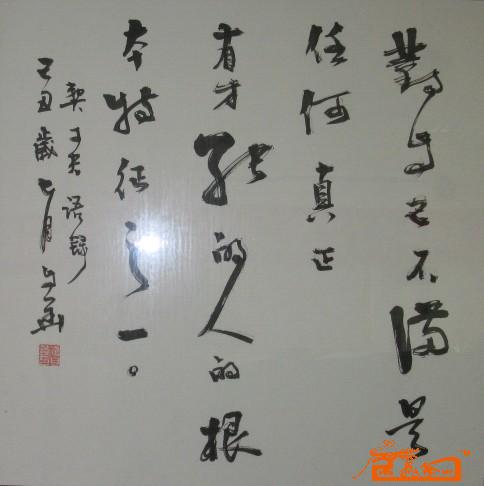 對自己不滿是
任何真正
有才能的人的根
本特征之一。
契可夫语録
己丑歲七月